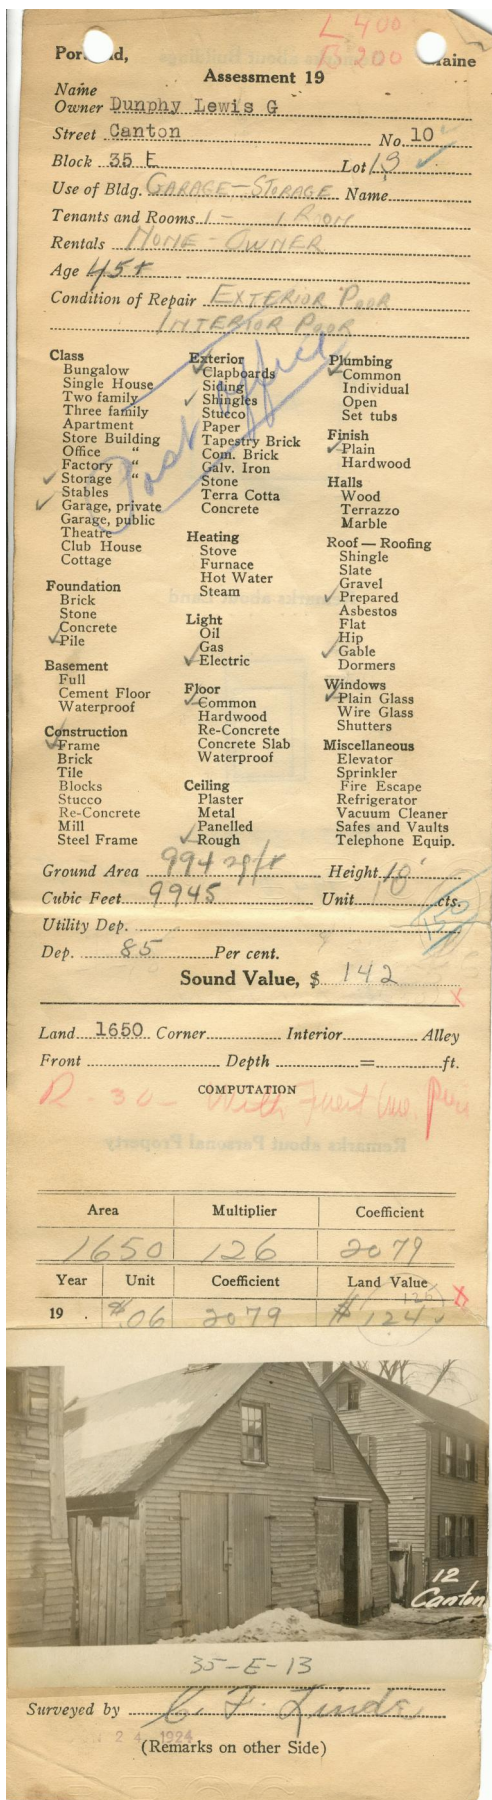 L 400
B 200
Por d, aine
Assessment 19
Name
Owner Dunphy Lewis G
Street Canton No. 10
Block 35 E Lot 13
Use of Bldg. GARAGE-STORAGE Name
Tenants and Rooms 1 - 1 ROOM
Rentals NONE-OWNER
Age 45+
Condition of Repair EXTERIOR POOR
INTERIOR POOR
Post office
Class
Bungalow
Single House
Two family
Three family
Apartment
Store Building
Office "
Factory "
Storage "
Stables
Garage, private
Garage, public
Theatre
Club House
Cottage
Foundation
Brick
Stone
Concrete
Pile
Basement
Full
Cement Floor
Waterproof
Construction
Frame
Brick
Tile
Blocks
Stucco
Re-Concrete
Mill
Steel Frame
Exterior
Clapboards
Siding
Shingles
Stucco
Paper
Tapestry Brick
Com. Brick
Galv. Iron
Stone
Terra Cotta
Concrete
Heating
Stove
Furnace
Hot Water
Steam
Light
Oil
Gas
Electric
Floor
Common
Hardwood
Re-Concrete
Concrete Slab
Waterproof
Ceiling
Plaster
Metal
Panelled
Rough
Plumbing
Common
Individual
Open
Set tubs
Finish
Plain
Hardwood
Halls
Wood
Terrazzo
Marble
Roof — Roofing
Shingle
Slate
Gravel
Prepared
Asbestos
Flat
Hip
Gable
Dormers
Windows
Plain Glass
Wire Glass
Shutters
Miscellaneous
Elevator
Sprinkler
Fire Escape
Refrigerator
Vacuum Cleaner
Safes and Vaults
Telephone Equip.
Ground Area 994 sq ft Height 10'
Cubic Feet 9945 Unit cts.
150
Utility Dep.
Dep. 85 Per cent.
Sound Value, $ 142
x
Land 1650 Corner Interior Alley
Front Depth = ft.
COMPUTATION
R-30- With
Area Multiplier Coefficient
1650 126 2079
Year Unit Coefficient Land Value
126 x
19 . $.06 2079 $124
12
Canton
35-E-13
Surveyed by C. F. Linds
24 1924
(Remarks on other Side)